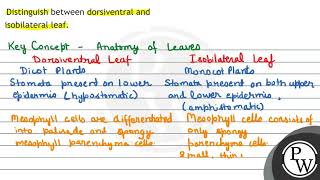 Distinguish between dorsiventral and
isobilateral leaf.
Key Concept - Anatomy of Leaves
Dorsiventral Leaf Isobilateral Leaf
Dicot Plants Monocot Plants
Stomata present on lower Stomata present on both upper
epidermis (hypostomatic) and lower epidermis.
(amphistomatic)
Mesophyll cells are differentiated Mesophyll cells consists of
into palisade and spongy only spongy
mesophyll parenchyma cells parenchyma cells
PW